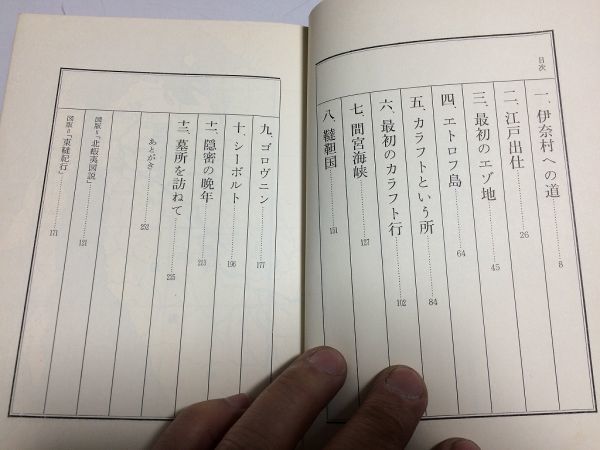 目次
一、伊奈村への道 8
二、江戸出仕 26
三、最初のエゾ地 45
四、エトロフ島 64
五、カラフトという所 84
六、最初のカラフト行 102
七、間宮海峡 127
八、韃靼国 151
九、ゴロヴニン 177
十、シーボルト 196
十一、隠密の晩年 213
十二、墓所を訪ねて 225
あとがき 232
図版=「北蝦夷図説」 121
図版=「東韃紀行」 171